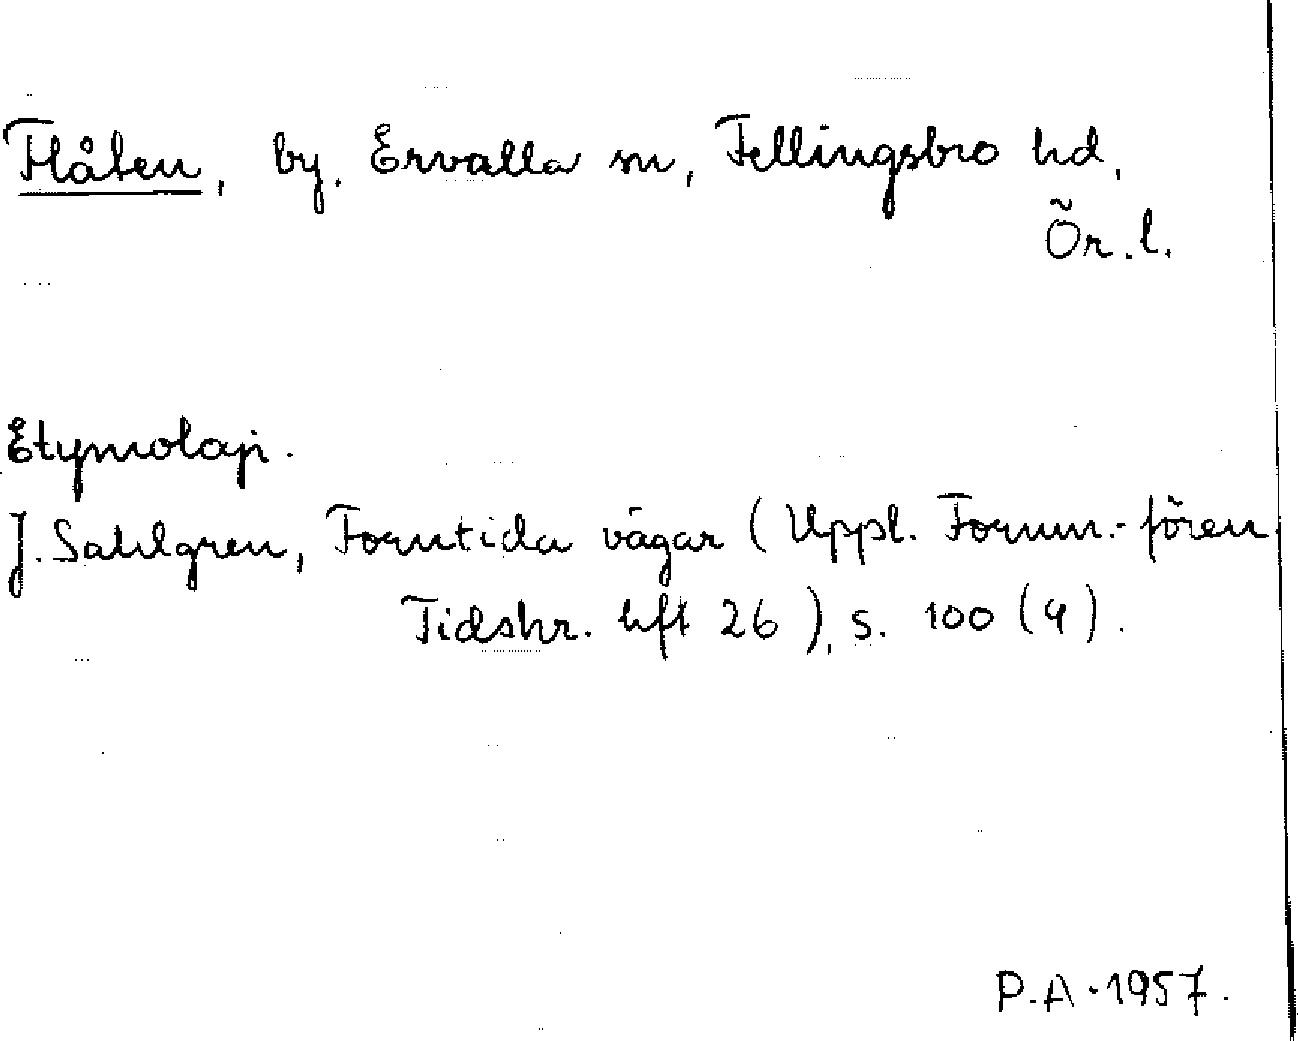 Flåten, by, Ervalla sn, Fellingsbro hd,
Ör. l.
Etymologi.
J. Sahlgren, Forntida vägar (Uppl. Fornm.-fören.
Tidskr. hft 26), s. 100 (4).
P.A. 1957.